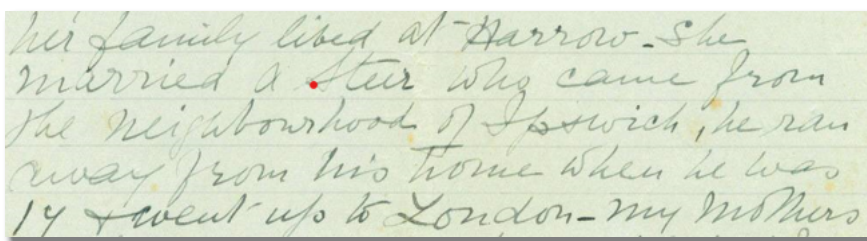 her family lived at Harrow - she
married a Steer who came from
the neighbourhood of Ipswich, he ran
away from his home when he was
14 & went up to London - my Mothers